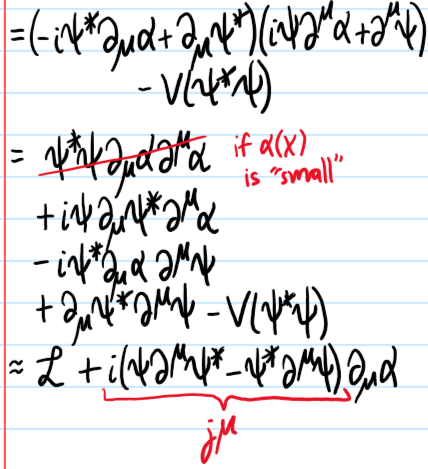 =(-iψ*∂μα+∂μψ*)(iψ∂^μα+∂^μψ)
-V(ψ*ψ)
= ψ*ψ∂μα∂^μα if α(x)
is "small"
+iψ∂μψ*∂^μα
-iψ*∂μα ∂^μψ
+∂μψ*∂^μψ -V(ψ*ψ)
≈ ℒ +i(ψ∂^μψ*-ψ*∂^μψ)∂μα
j^μ